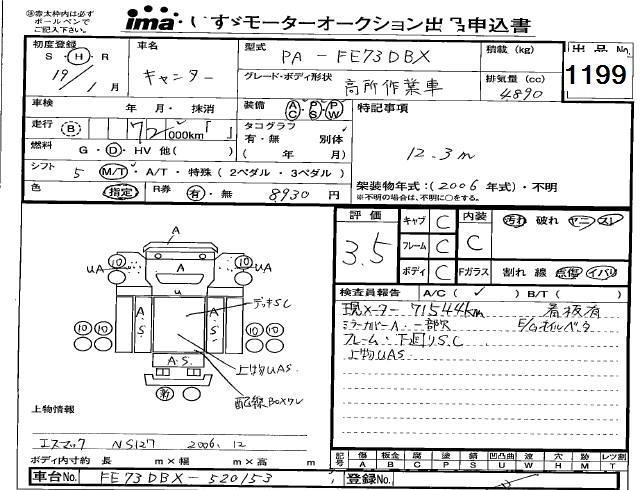 ㊟赤太枠内は必ず
ボールペンで
ご記入下さい。
ima いすゞモーターオークション出品申込書
初度登録 S・H・R 19/1月
車名 キャンター
型式 PA-FE73DBX
積載(kg)
出品No. 1199
グレード・ボディ形状 高所作業車
排気量(cc) 4890
車検 年 月・ 抹消
装備 AC・PS・PW
特記事項
走行 B 72 000km「 」
タコグラフ 有・無 別体
( 年 月)
12.3m
燃料 G・D・HV 他( )
シフト 5 M/T・A/T・特殊(2ペダル・3ペダル)
架装物年式:(2006年式)・不明
※不明の場合は、不明に○をする。
色 指定
R券 有・無 8930円
評価 3.5
キャブ C
フレーム C
ボディ C
内装 C
汚れ 破れ ヤニ スレ
Fガラス 割れ 線 点傷 イバリ
検査員報告 A/C(✓) B/T( )
現メーター71544km 看板有
ミラーカバーA・一部欠 E/Gオイルベタ
フレーム・下廻りSC
上物UAS
A
10 10
UA A UA
U
デッキSC
A・S A・S
10 10 10 10
A.S.
上物UAS
配線BOXワレ
新
上物情報
エスマック NS127 2006.12
ボディ内寸約 長 m×幅 m×高 m
記号 傷A 板金B 腐C 塗P 錆S 凹凸曲U 波W 穴H 跡M レツ割T
車台No. FE73DBX-520153
登録No.